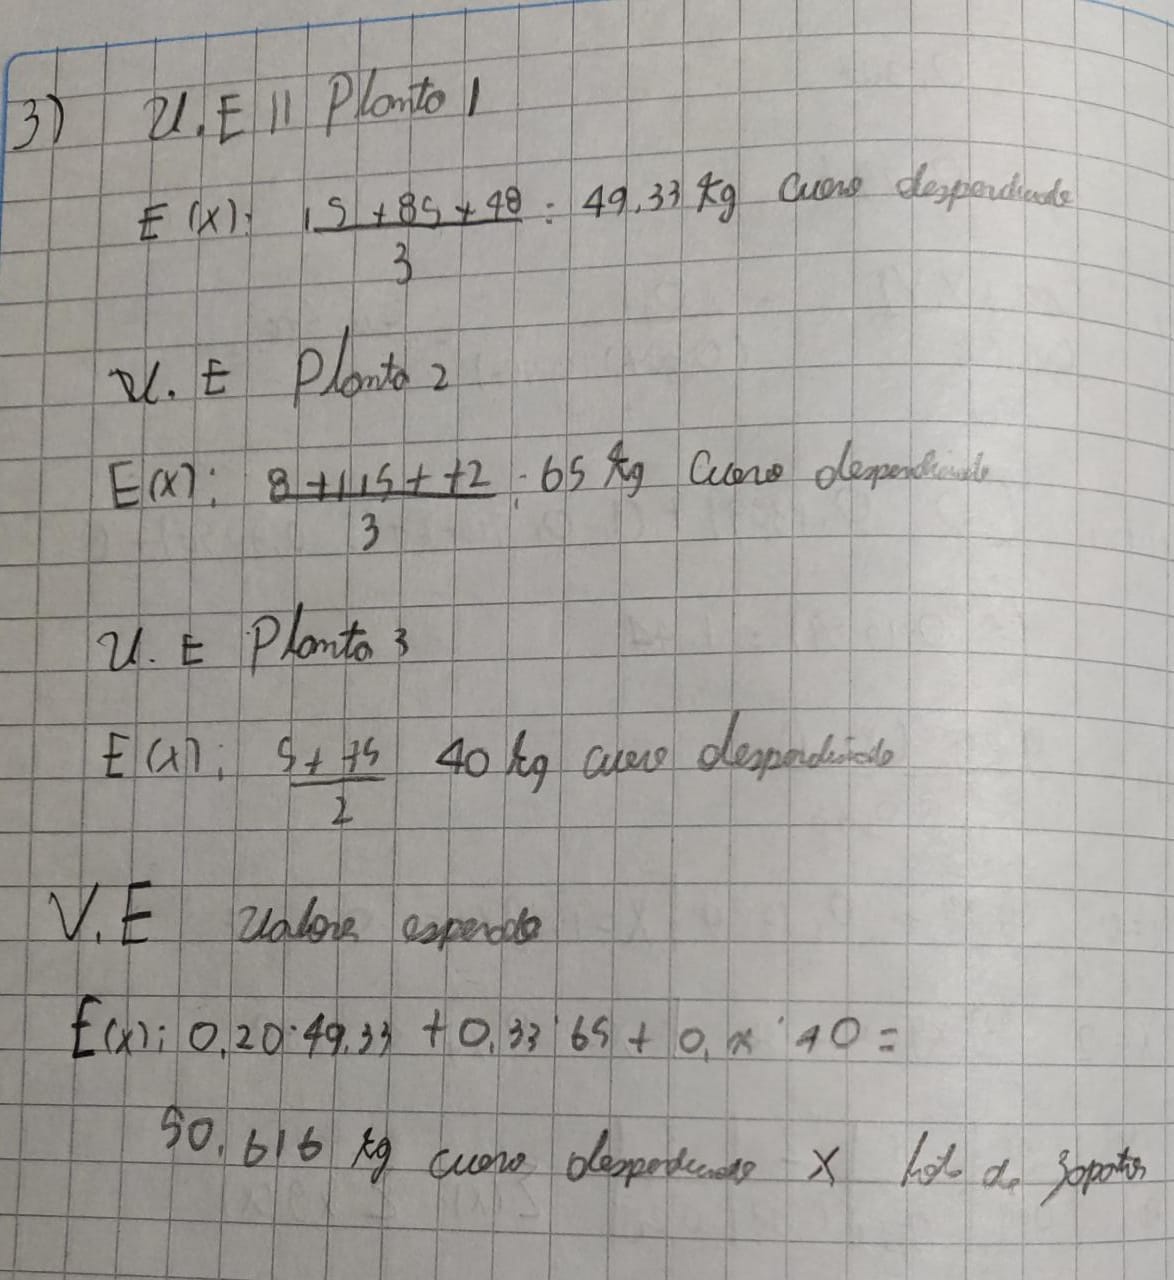 3) V.E || Planta 1
E(x): 15 + 85 + 48 : 49,33 kg cuero desperdiciado
3
V.E Planta 2
E(x): 8 + 115 + 72 : 65 kg cuero desperdiciado
3
V.E Planta 3
E(x): 5 + 75 40 kg cuero desperdiciado
2
V.E valore esperado
E(x): 0,20 · 49,33 + 0,33 · 65 + 0, · 40 =
50,616 kg cuero desperdiciado x lot de zapatos